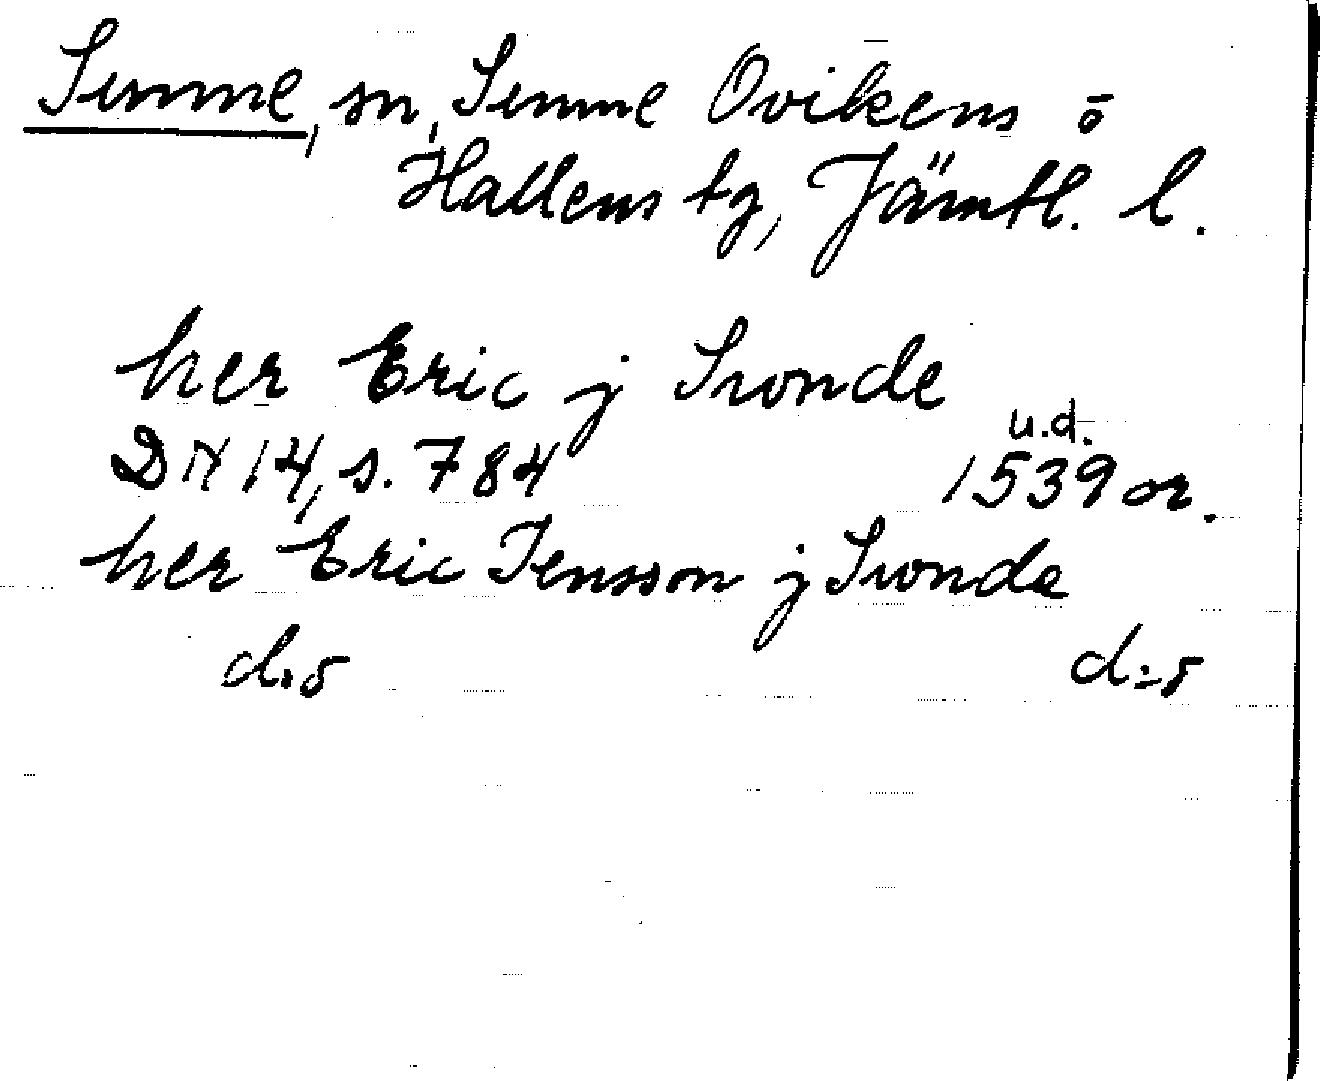 Sunne, sn, Sunne Ovikens o
Hallens tg, Jämtl. l.
her Eric j Swnde
u.d.
DN 14, s. 784 1539 or.
her Eric Jensson j Swnde
d:o d:o